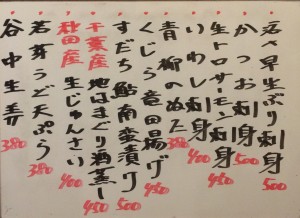 活〆早生ぶり刺身 500
かつお刺身 500
生トロサーモン刺身 450
いわし刺身 400
青柳のぬた 380
くじら竜田揚げ 450
すだち鮎南蛮漬け 500
千葉産 地はまぐり酒蒸し 450
秋田産 生じゅんさい 400
若芽うど天ぷら 380
谷中生姜 380